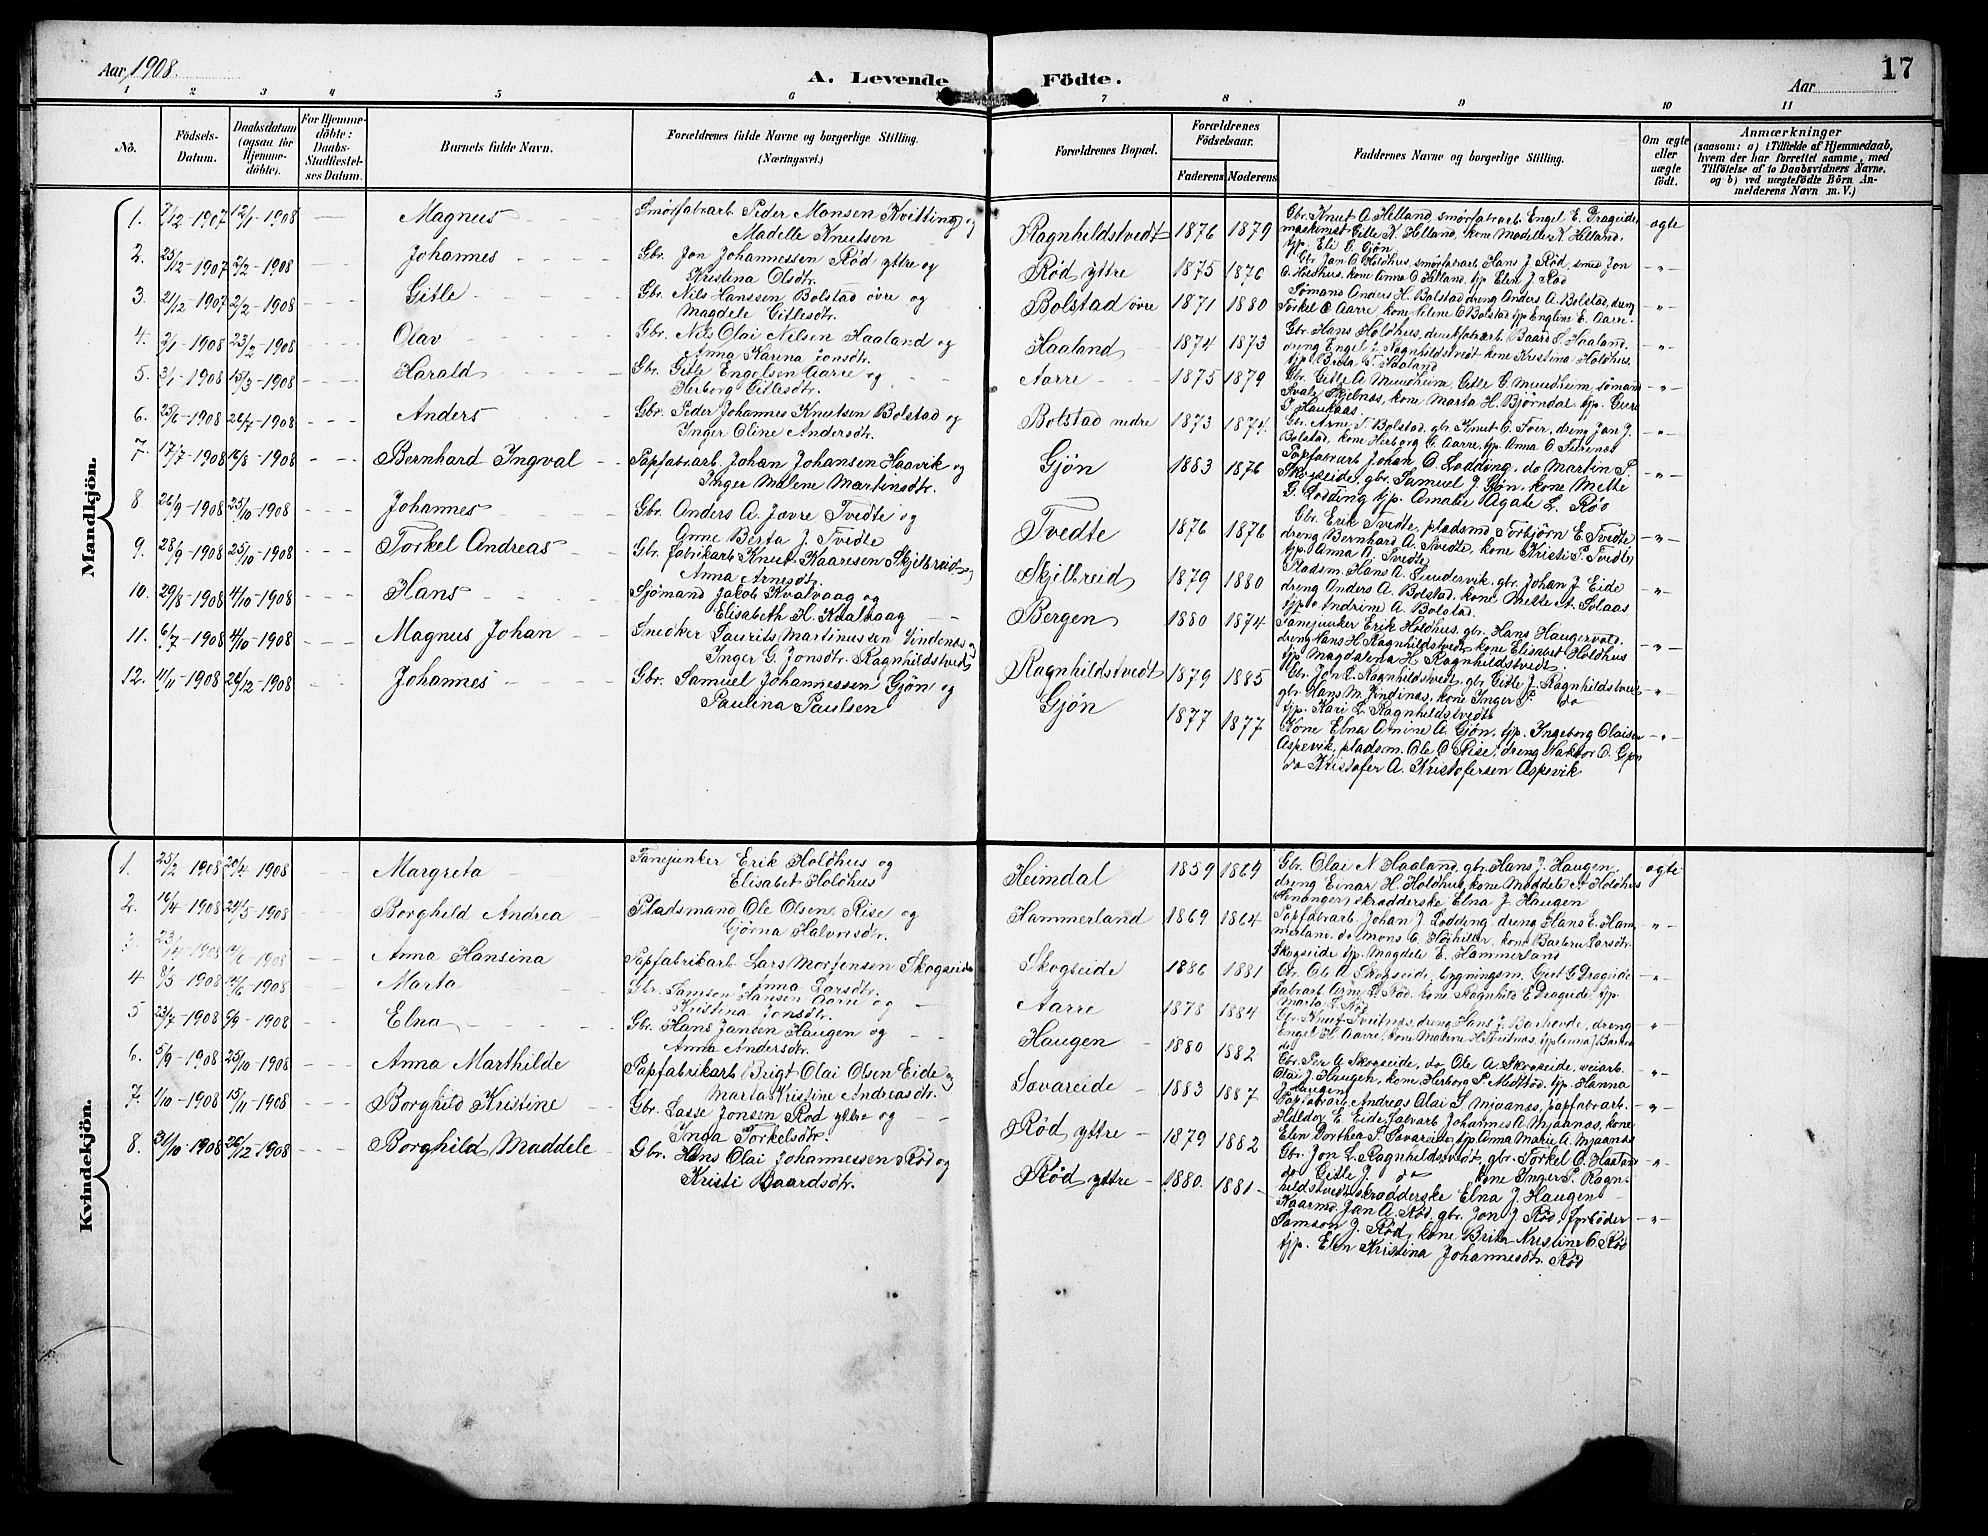 Aar 1908.
A. Levende Födte.
Aar
17
1 2 3 4 5 6 7 8 9 10 11
No.
Födsels-Datum.
Daabsdatum (ogsaa for Hjemmedöbte).
For Hjemmedöbte: Daabs-Stadfæstelses Datum.
Barnets fulde Navn.
Forældrenes fulde Navne og borgerlige Stilling. (Næringsvei.)
Forældrenes Bopæl.
Forældrenes Födselsaar.
Faderens Moderens
Faddernes Navne og borgerlige Stilling.
Om ægte eller uægte födt.
Anmærkninger
(saasom: a) i Tilfælde af Hjemmedaab, hvem der har forrettet samme, med Tilföielse af to Daabsvidners Navne, og b) ved uægtefödte Börn Anmelderens Navn m. V.)
Mandkjön.
1. 7/12 1907 12/1-1908 Magnus Smörfabrarb. Peder Monsen Kvitting og
Madelle Knutsen
2. 25/12-1907 2/2-1908 Johannes Gbr. Jon Johannessen Röd yttre og
Kristina Olsdtr.
3. 21/12 1907 2/2-1908 Gitle Gbr. Nils Hanssen Bolstad övre og
Magdele Gitlesdtr.
4. 2/1-1908 23/2-1908 Olav Gbr. Nils Olai Nilsen Haaland og
Anna Karina Jonsdtr.
5. 3/1-1908 15/3-1908 Harald Gbr. Gitle Engelsen Aarre og
Herborg Gitlesdtr.
6. 25/6-1908 26/7-1908 Anders Gbr. Peder Johannes Knutsen Bolstad og
Inger Oline Andersdtr.
7. 17/7-1908 16/8-1908 Bernhard Ingval Papfabrarb. Johan Johansen Haavik og
Inger Malene Martinsdtr.
8. 26/9-1908 25/10-1908 Johannes Gbr. Anders A. Jovre Tvedte og
Anne Berta J. Tvedte
9. 28/9-1908 25/10-1908 Torkel Andreas Gbr. fabrikarb. Knut Kaaresen Skjelbreid og
Anna Arnesdtr.
10. 29/8-1908 4/10-1908 Hans Sjömand Jakob Kvalvaag og
Elisabeth H. Kvalvaag
11. 6/7-1908 4/10-1908 Magnus Johan Snedker Laurits Martinussen Vindenes og
Inger G. Jonsdtr. Ragnhildstvedt
12. 11/11-1908 26/12-1908 Johannes Gbr. Samuel Johannessen Gjön og
Paulina Paulsen
Ragnhildstvedt 1876 1879
Röd yttre 1875 1876
Bolstad övre 1871 1880
Haaland 1874 1873
Aarre 1875 1879
Bolstad nedre 1873 1874.
Gjön 1883 1876
Tvedte 1876 1876
Skjelbreid 1879 1880
Bergen 1880 1874
Ragnhildstvedt 1879 1885
Gjön 1877 1877
Gbr. Knut A. Helland, smörfabrarb. Engel E. Drageide, ægte
maskinist Gitle K. Helland, kone Madelle K. Helland,
tjp. Eli E. Gjön
Gbr. Jan O. Holdhus, smörfabrarb. Hans J. Röd, smed Jon
O. Holdhus, kone Anna O. Helland, tjp. Elen J. Röd
Sömand Anders H. Bolstad, dreng Anders A. Bolstad, dreng
Torkel E. Aarre, kone Nilene O. Bolstad tjp. Engline E. Aarre.
Gbr. Hans Holdhus, Baard S. Haaland,
kone Kristina Holdhus,
tjp. Berta T. Haaland
Gbr. Gitle A. Mundheim, Gitle G. Mundheim, sömand
kone Marta H. Björndal, tjp. Guro
J. Haukaas.
Gbr. Arne T. Bolstad, gbr. Knut E. Tver, dreng Jan J.
Bolstad, kone Herborg E. Aarre, tjp. Anna
Papfabrarb. Johan O. Lodding, do Martin S.
Skogseide, gbr. Samuel J. Gjön, kone Mette
G. Lodding tjp. Amalie Agate L. Röd
Gbr. Erik Tvedte, pladsmd. Torbjörn E. Tvedte
dreng Bernhard A. Tvedte, kone Kristi P. Tvedte,
tjp. Anna A. Tvedte
Pladsm. Hans A. Sundervik, gbr. Johan J. Eide
dreng Anders A. Bolstad, kone Mette A. Solaas
tjp. Andrine A. Bolstad.
Tømjunker Erik Holdhus, gbr. Hans Haugervold,
dreng Hans H. Ragnhildstvedt, kone Elisabet Holdhus
tjp. Magdalena H. Ragnhildstvedt.
Gbr. Jon L. Ragnhildstvedt, gbr. Gitle J. Ragnhildstvedt
gbr. Hans M. Vindinæs, kone Inger P. do
tjp. Kari L. Ragnhildstvedt
Kone Elna Amine A. Gjön, tjp. Ingeborg Olaisen
Aspevik, pladsm. Ole O. Rise, dreng Haktor O. Gjön
do Kristofer A. Kristofersen Aspevik.
Kvindekjön.
1. 25/2 1908 20/4-1908 Margreta Erik Holdhus og
Elisabet Holdhus
2. 16/4 1908 24/5-1908 Borghild Andrea Pladsmand Ole Olsen Rise og
Gjörna Halvorsdtr.
3. 23/4-1908 14/6 1908 Anna Hansina Papfabrikarb. Lars Mortensen Skogseide
Anna Larsdtr.
4. 8/5 1908 14/6-1908 Marta Gbr. Samson Hansen Aarre og
Kristina Jonsdtr.
5 23/7-1908 6/9-1908 Elna Gbr. Hans Jansen Haugen og
Anna Andersdtr.
6. 5/9-1908 25/10-1908 Anna Marthilde Papfabrikarb. Brigt Olai Olsen Eide og
Marta Kristine Andreasdtr.
7. 1/10-1908 15/11-1908 Borghild Kristine Gbr. Lasse Jonsen Röd yttre og
Inga Torkelsdtr.
8. 31/10-1908 26/12-1908 Borghild Maddele Gbr. Hans Olai Johannessen Röd og
Kristi Baardsdtr.
Heimdal 1859 1869
Hammerland 1869 1864
Skogseide 1886 1881
Aarre 1878 1884
Haugen 1880 1882
Savareide 1883 1887
Röd yttre 1879 1882
Röd yttre 1880. 1881
Gbr. Olai N. Haaland, gbr. Hans J. Haugen, ægte
dreng Einar H. Holdhus, kone Maddele A. Holdhus
skradderske Elna J. Haugen
Papfabrarb. Johan J. Lodding, dreng Hans E. Ham
merland, do Mons O. kone Larsdtr.
Skogseide tjp. Magdele E. Hammerland
Gbr. Ole A. Skogseide, bygningsm. Gjert G. Drageide
fabrarb. Arne L. Röd. kone Ragnhild E. Drageide, tjp.
Marta L. Röd
Gbr. Knut Tveitnæs, dreng Hans J.
Engel H. Aarre, kone Malene H. Tveitnæs, tjp. Anna J.
do
Gbr. Per A. Skogseide, do Ole A. Skogseide, veiarb.
Olai J. Haugen, kone Herborg P. tjp. Hanna
J. Haugen
Papfabrarb. Andreas Olai S. Mjaanæs, papfabrarb.
Haldor E. Eide, fabrarb. Johannes A. Mjaanæs, kone
Elen Dorthea P. Savareide, tjp. Anna Marie A. Mjaanæs
Gbr. Jon L. Ragnhildstvedt, gbr. Torkel O. Haaland
do Gitle J. do kone Inger P. Ragn-
hildstvedt skradderske Elna J. Haugen
Kaarmd. Jan A. Röd, gbr. Jon J. Röd,
Samson J. Röd, kone Brita Kristine O. Röd
tjp. Elen Kristina Johannesdtr. Röd